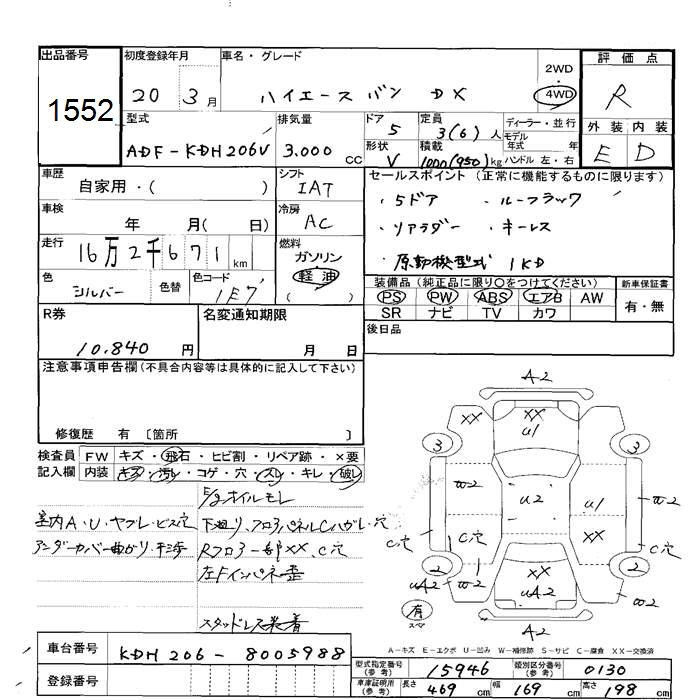 出品番号
1552
初度登録年月
20 3月
車名・グレード
ハイエース バン DX
2WD
・
4WD
評価点
R
型式
ADF-KDH206V
排気量
3.000 CC
ドア
5
形状
V
定員
3(6)人
積載
1000(950)kg
ディーラー・並行
モデル
年式 年
ハンドル 左・右
外装 内装
E D
車歴
自家用・( )
シフト
IAT
車検
年 月( 日)
冷房
AC
走行
16万2千671km
燃料
ガソリン
軽油
( )
色
シルバー
色替
色コード
1E7
セールスポイント (正常に機能するものに限ります)
・5ドア ・ルーフラック
・リアラダー ・キーレス
・原動機型式 1KD
装備品 (純正品に限り〇をつけてください)
PS PW ABS エアB AW
SR ナビ TV カワ
新車保証書
有・無
後日品
R券
10.840 円
名変通知期限
月 日
注意事項申告欄 (不具合内容等は具体的に記入して下さい)
修復歴 有 〔箇所 〕
検査員
記入欄
FW キズ・飛石・ヒビ割・リペア跡・×要
内装 キズ・汚レ・コゲ・穴・スレ・キレ・破レ
E/gオイルモレ
室内A・U・ヤブレ・ビス穴
下廻り、フロアパネルCハガレ・穴
アンダーカバー曲がり・
Rフロアー部XX、C穴
左Fインパネ歪
スタッドレス装着
A2
XX
U1
3
3
W2
U2
U1
W2
XX
C穴
C穴
1
1
2
2
UA2
W2
XX
UA2
W2
有
スペア
A2
A－キズ E－エクボ U－凹み W－補修跡 S－サビ C－腐食 XX－交換済
車台番号
KDH 206 - 8005988
登録番号
型式指定番号
(参考)
15946
類別区分番号
(参考)
0130
車庫証明用
(参考)
長さ 469 cm
幅 169 cm
高さ 198 cm